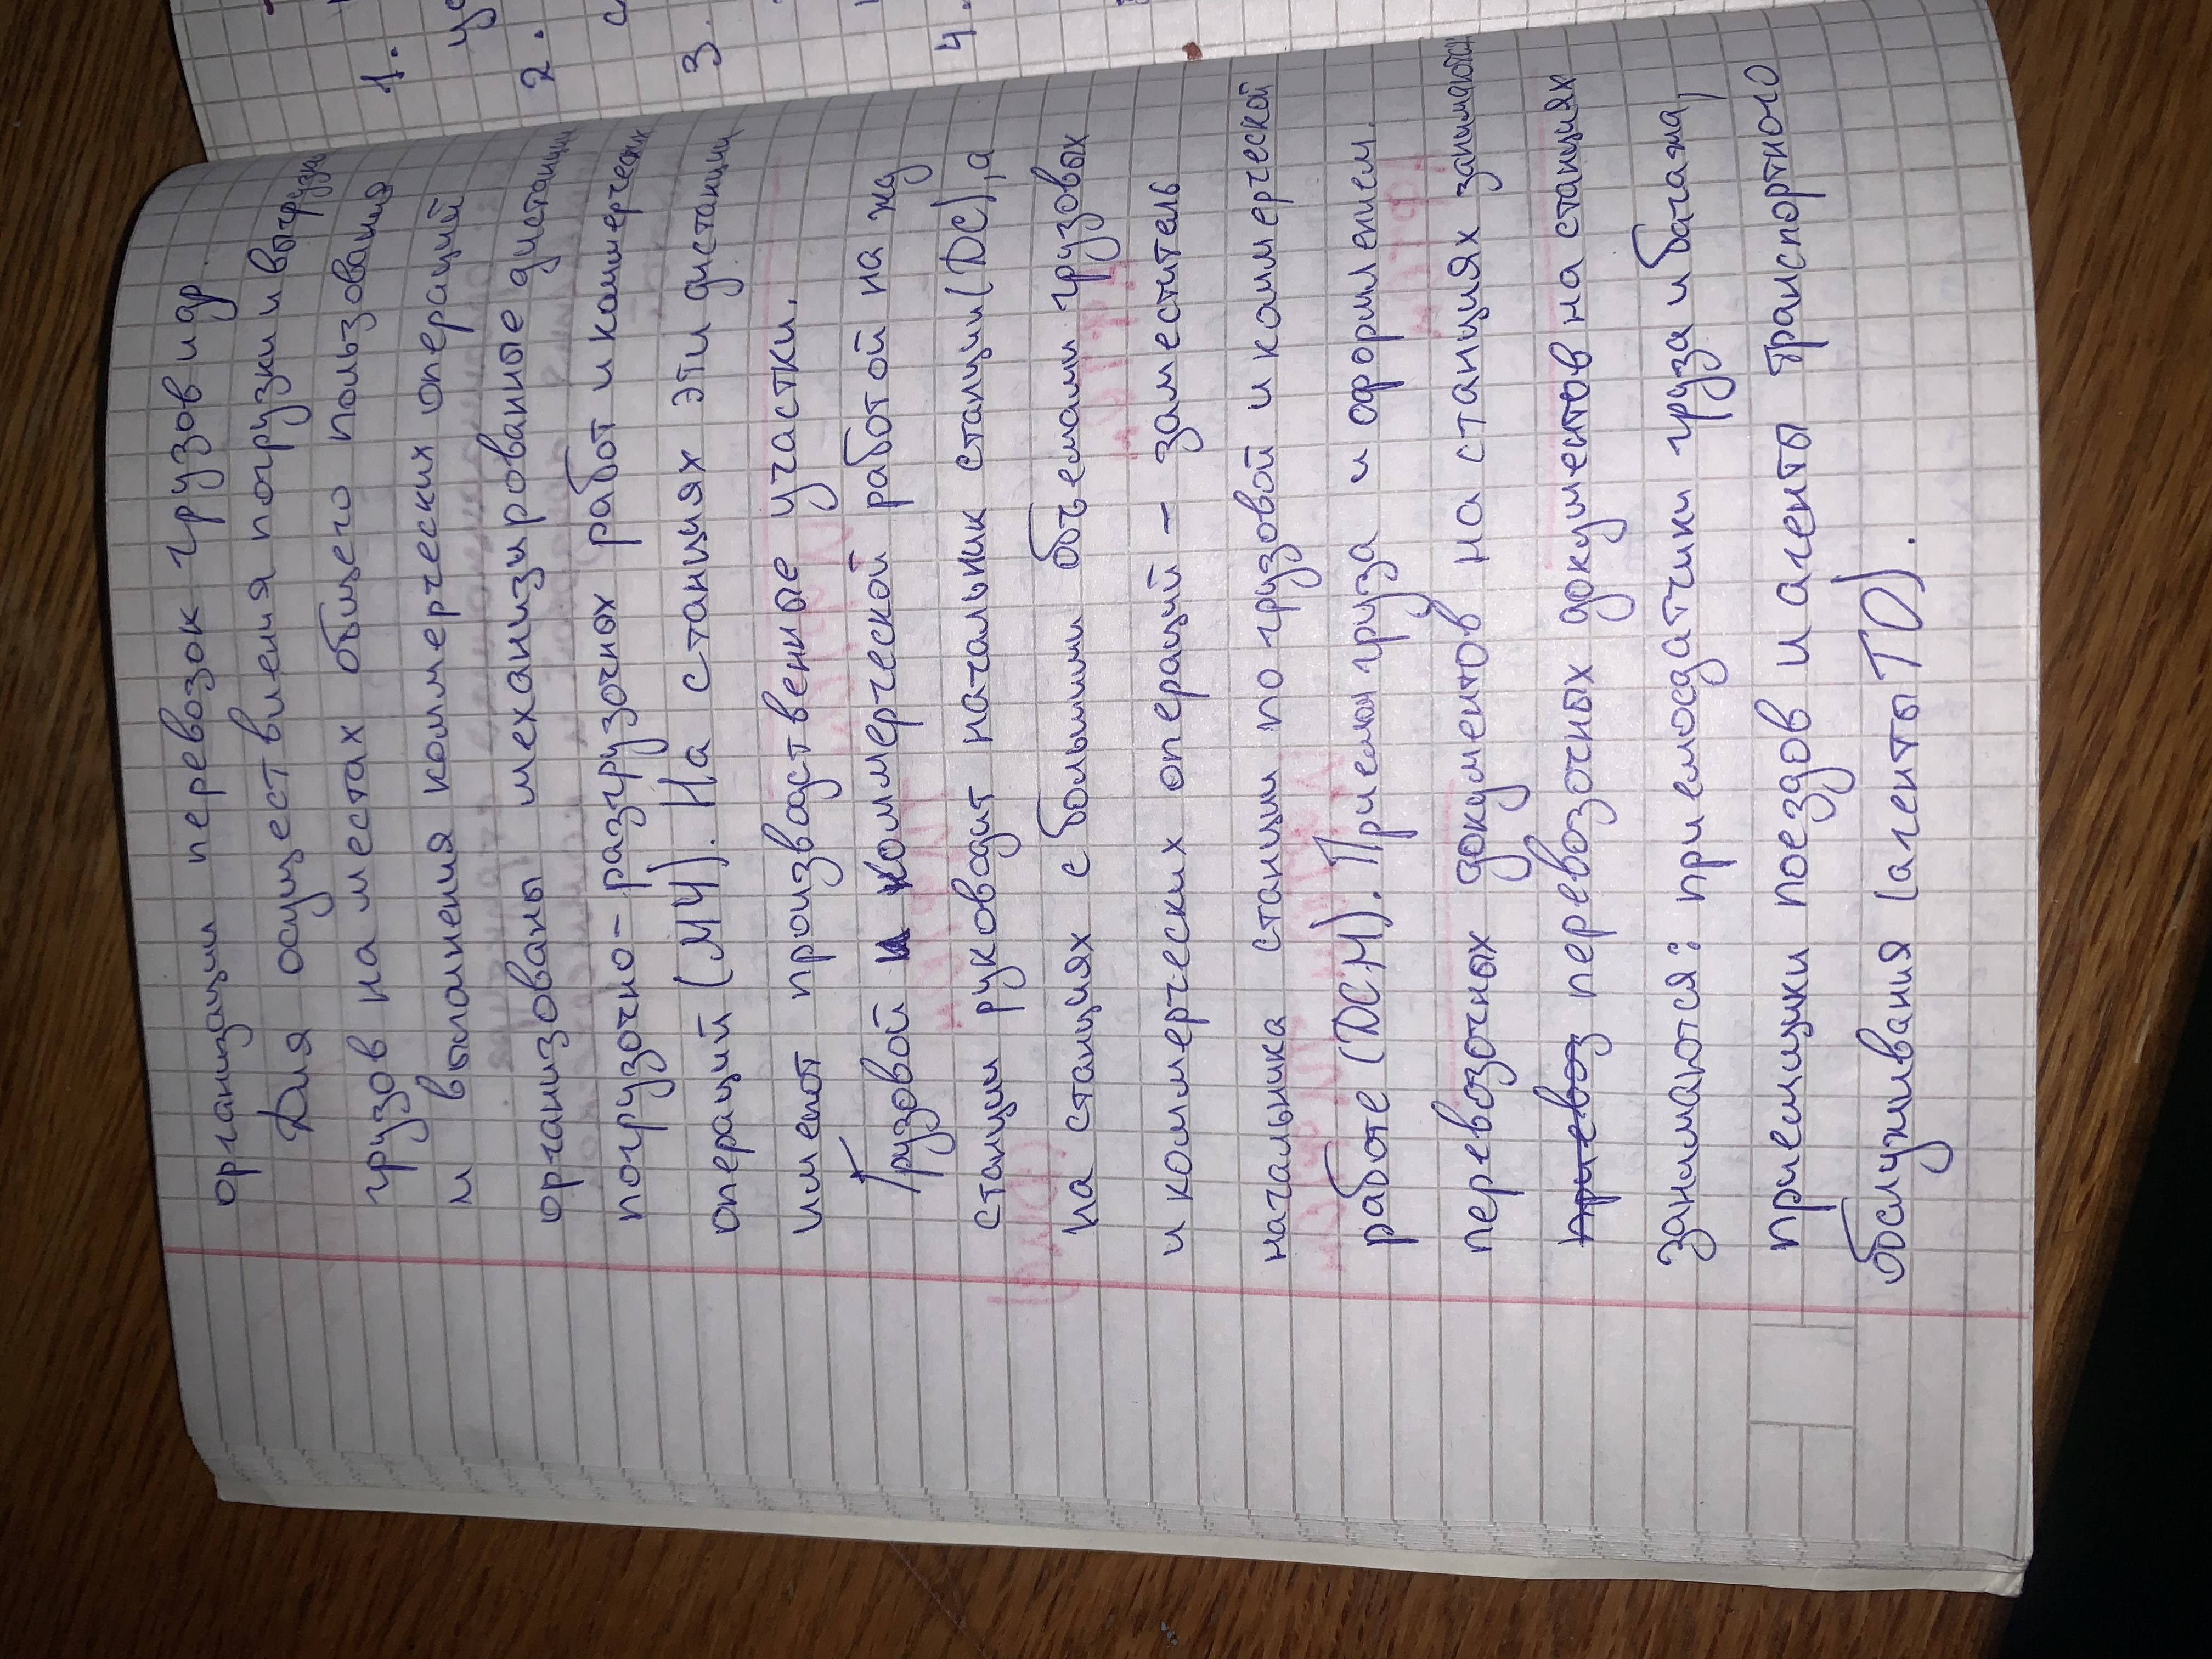 организации перевозок грузов и др.
Для осуществления погрузки и выгрузки
грузов на местах общего пользования
и выполнения коммерческих операций
организованы механизированные дистанции
погрузочно-разгрузочных работ и коммерческих
операций (МЧ). На станциях эти дистанции
имеют производственные участки.
Грузовой и коммерческой работой на жд
станции руководит начальник станции (ДС), а
на станциях с большими объемами грузовых
и коммерческих операций - заместитель
начальника станции по грузовой и коммерческой
работе (ДСМ). Прием груза и оформлением
перевозочных документов на станциях занимаются
перевозочных документов на станциях
занимаются: приемосдатчики груза и багажа,
приемщики поездов и агенты транспортного
обслуживания (агенты ТО).
1.
2.
3.
4.